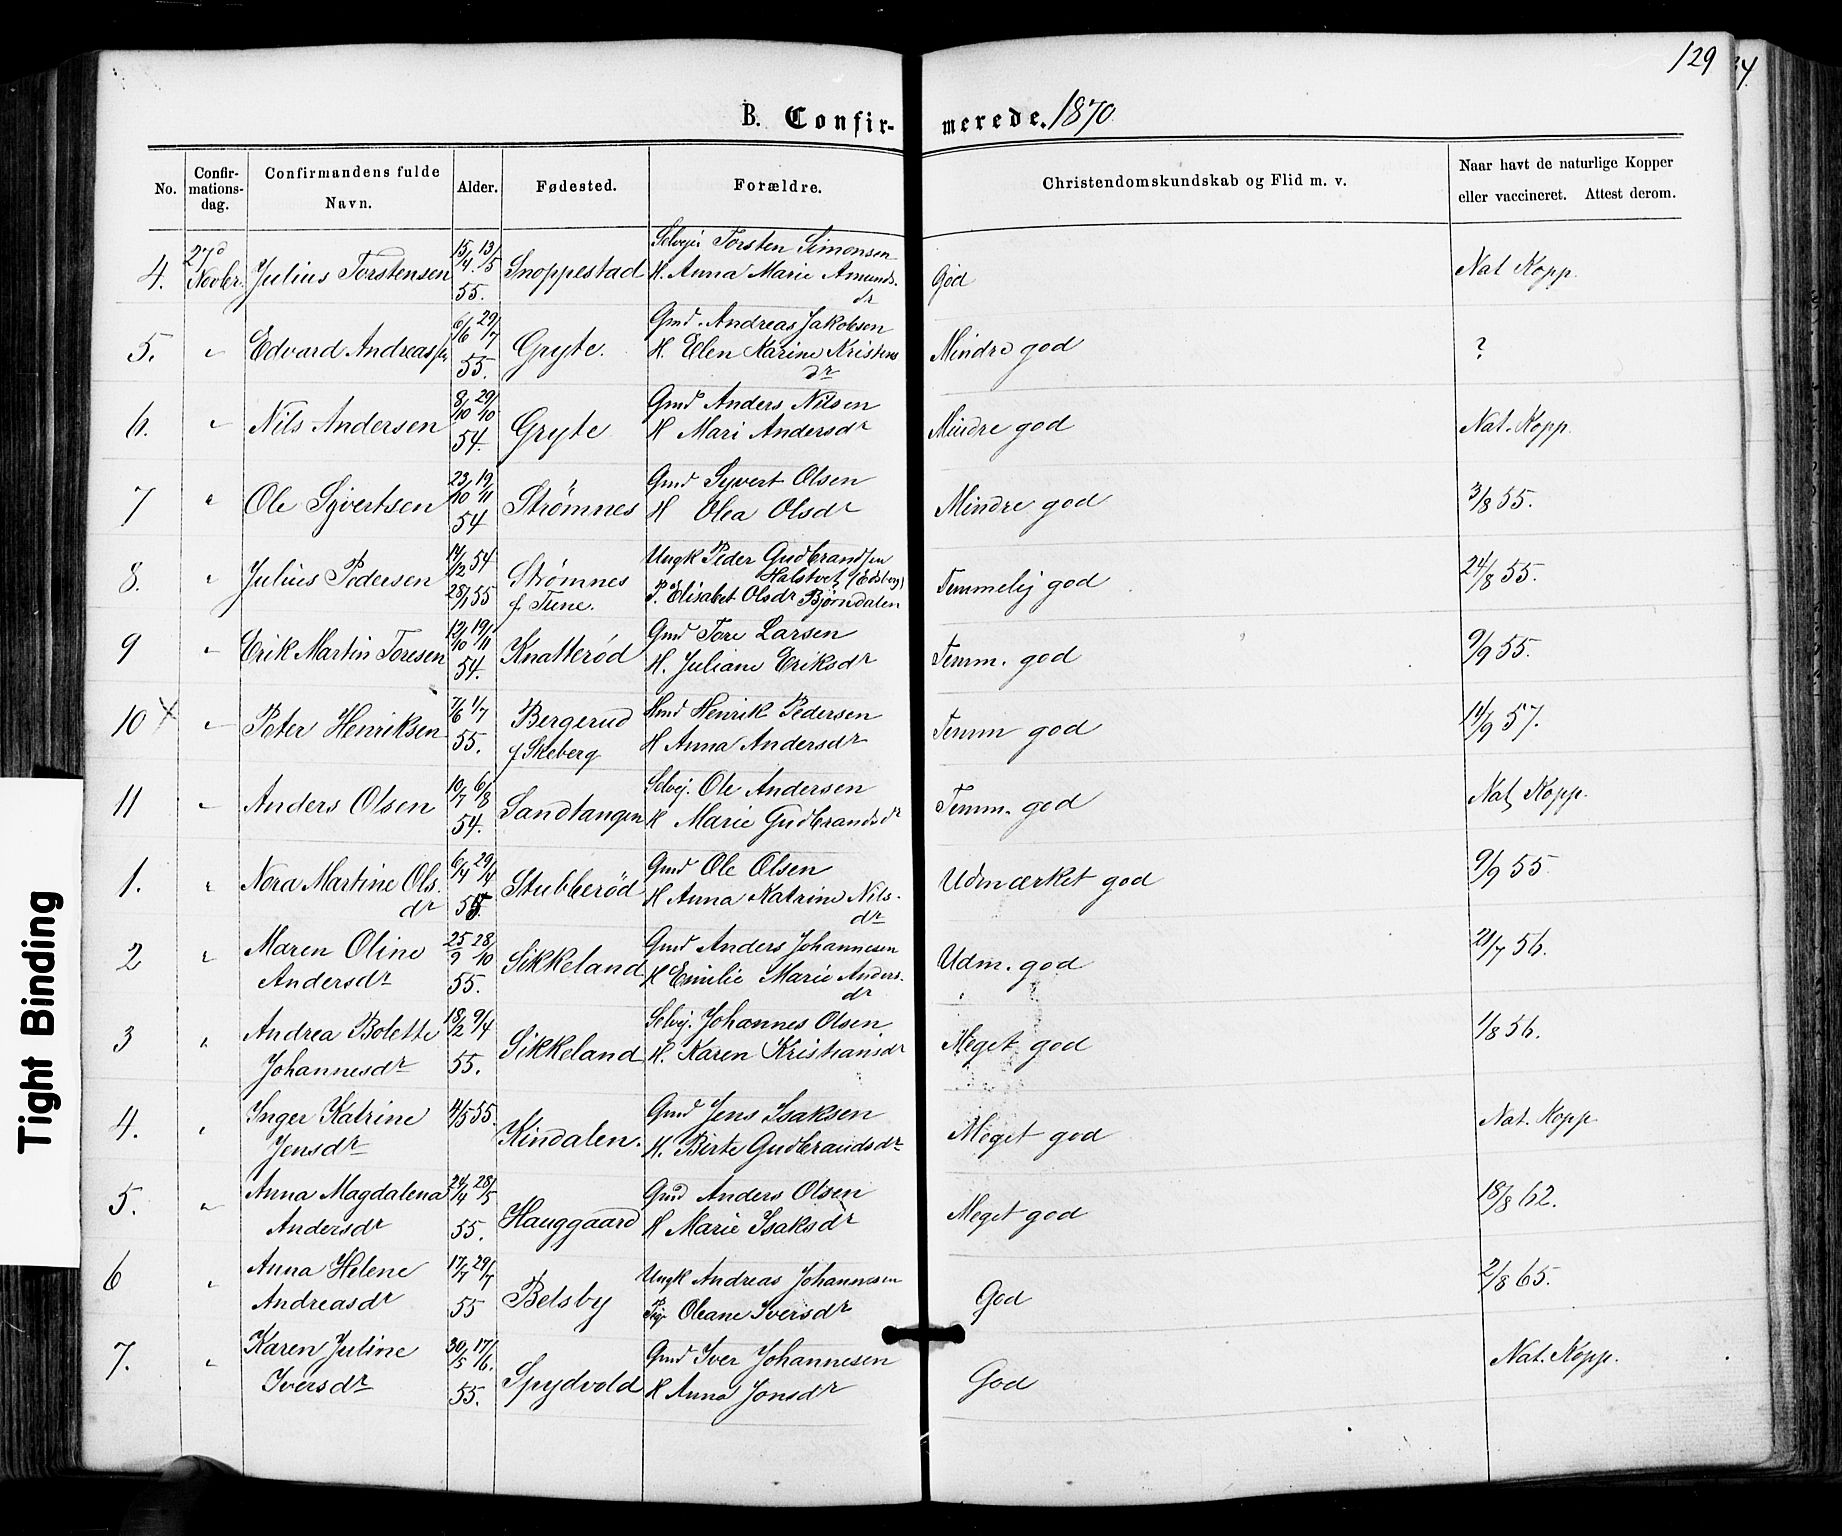 129
B. Confir- merede. 1870
No.
Confir-
mations-
dag.
Confirmandens fulde
Navn.
Alder.
Fødested.
Forældre.
Christendomskundskab og Flid m. v.
Naar havt de naturlige Kopper
eller vaccineret. Attest derom.
4. 27d Novbr. Julius Torstensen 15/4 13/5 55. Snoppestad Selvejer Torsten Simonsen
H. Anna Marie Amunds-
dr God Nat Kopp.
5. " Edvard Andreassen 6/6 29/7 55. Gryte. Gmd. Andreas Jakobsen
H. Elen Karine Kristens
dr Mindre god ?
6. " Nils Andersen 8/10 29/10 54. Gryte Gmd Anders Nilsen
H Mari Andersdr Mindre god Nat. Kopp.
7 " Ole Syvertsen 23/10 19/11 54 Strømnes Gmd Syvert Olsen
H Olea Olsdr Mindre god 3/8 55.
8. " Julius Pedersen 17/12 54 28/1 55 Strømnes
f. Tune. Ungk Peder Gudbrandsen
Halstvet (Edsberg)
P. Elisabet Olsdr Bjørndalen Temmelig god 24/8 55.
9 " Erik Martin Toresen 12/10 19/11 54. Knatterød Gmd Tore Larsen
H. Juliane Eriksdr Temm. god 9/9 55.
10 × " Peter Henriksen 7/6 1/7 55. Bergerud
f Skeberg Hmd Henrik Pedersen
H Anna Andersdr Temm god 14/9 57.
11 " Anders Olsen 10/7 6/8 54. Sandtangen Selvej. Ole Andersen
H Marie Gudbrandsdr Temm. god Nat Kopp.
1. " Nora Martine Ols-
dr 6/4 29/4 55. Stubberød Gmd Ole Olsen
H Anna Katrine Nils-
dr Udmærket god 9/9 55
2 " Maren Oline
Andersdr 25/9 28/10 55. Sikkeland Gmd Anders Johannesen
H Emilie Marie Anders-
dr Udm. god 21/7 56.
3 " Andrea Bolette
Johannesdr 18/2 9/4 55. Sikkeland Selvej. Johannes Olsen
H. Karen Kristiansdr Meget god 1/8 56.
4. " Inger Katrine
Jensdr 4/5 55. Kindalen. Gmd Jens Isaksen
H. Birte Gudbrandsdr Meget god Nat. Kopp
5. " Anna Magdalena
Andersdr 24/4 28/5 55. Hauggaard Gmd Anders Olsen
H Marie Isaksdr Meget god 18/8 62.
6 " Anna Helene
Andreasdr 17/7 29/7 55 Belsby Ungk Andreas Johannesen
Pig. Oleane Iversdr God 2/8 65.
7. " Karen Juline
Iversdr 30/5 17/6. 55. Spydvold Gmd Iver Johannesen
H Anna Jonsdr God Nat. Kopp.
Tight Binding